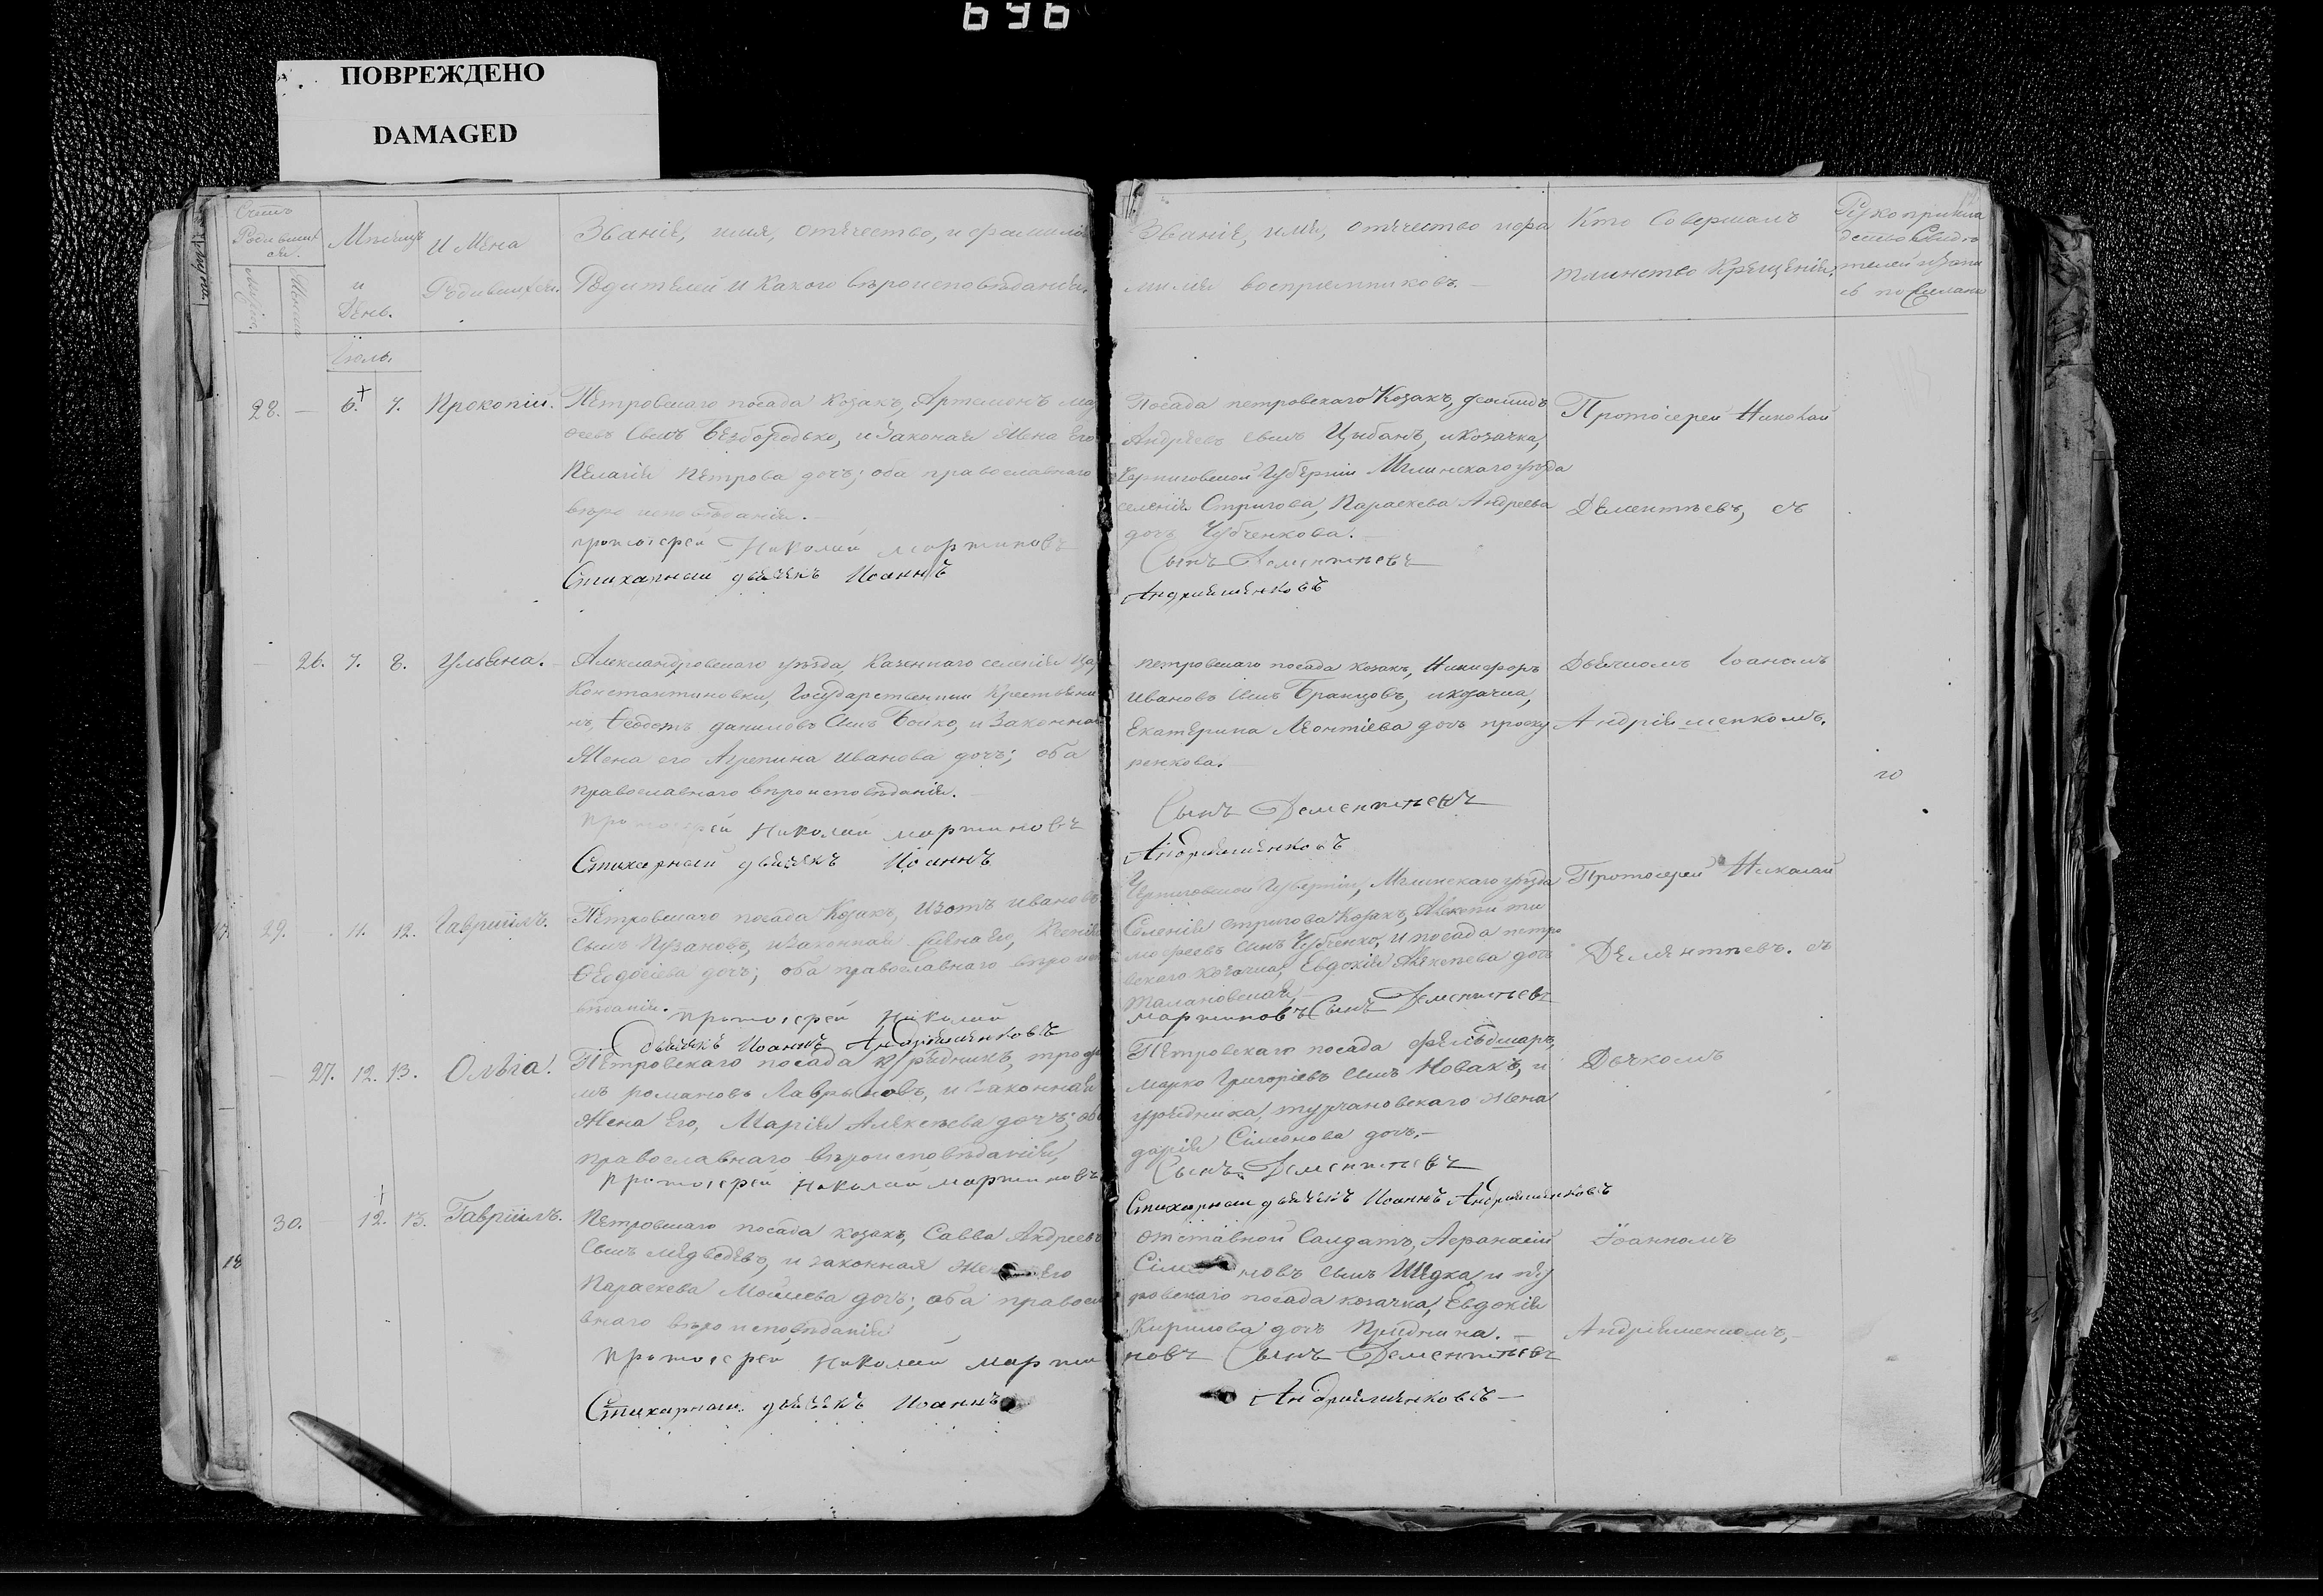 696
ПОВРЕЖДЕНО
DAMAGED
Счетъ
Родившихся.
Мѣсяцъ
и
День.
Имена
Родившихся.
Званіе, имя, отечество, и фамилія
Родителей и какого вѣроисповѣданія.
Іюль.
28. — 6. 7. Прокопій.
Петровскаго посада Козакъ, Артемонъ
сынъ Безбородько, и законая жена Его
Пелагія Петрова дочь; оба православнаго
вѣроисповѣданія.
протоіерей Николай мартиновъ
Стихарный дьячекъ Иоаннъ
— 26. 7. 8. Ульяна.
Александровскаго уѣзда, казеннаго селенія
Константиновки, Государственный Крестьяни
нъ, Ѳеодотъ даниловъ сынъ Бойко, и законная
Жена его Агрепина иванова дочь; оба
православнаго вѣроисповѣданія.
протоіерей Николай мартиновъ
Стихарный дьячекъ Иоаннъ
29. 11. 12. Гавріилъ.
Петровскаго посада Козакъ, Изотъ ивановъ
сынъ Пузановъ, и законная жена его, Ксенія
Ѳеодосіева дочь; оба православнаго вѣроиспо
вѣданія.
протоіерей Николай
дьячекъ Иоаннъ Андріяшенковъ
— 27. 12. 13. Ольга.
Петровскаго посада урядникъ, трофи
мъ романовъ Лавриновъ, и законная
Жена Его, Марія Алексѣева дочь; оба
православнаго вѣроисповѣданія,
протоіерей Николай мартиновъ
30. 12. 13. Гавріилъ.
18
Петровскаго посада козакъ, Савва Андреевъ
сынъ медведевъ, и законная же Его
Параскева Моисеева дочь; оба правосла
внаго вѣроисповѣданія
протоіерей Николай марти
Стихарный дьячекъ Иоаннъ
Званіе, имя, отечество и фа
милія воспріемниковъ.
Посада петровскаго Козакъ, демидъ
Андреевъ сынъ Цыбань, и козачка,
Черниговской Губерніи Мглинскаго уѣзда
селенія Стригова, Параскева Андреева
дочь Чубченкова.
Сынъ Дементьевъ
Андріяшенковъ
петровскаго посада козакъ, Никифоръ
Ивановъ сынъ Бранцовъ, и козачка,
Екатерина Леонтіева дочь проску
ренкова.
Сынъ Дементьевъ
Андріяшенковъ
Черниговской Губерніи, Мглинскаго уѣзда
Селенія стригова Козакъ, Алексѣй ти
мофеевъ сынъ Чубченко, и посада петро
вскаго козачка, Евдокія Алексѣева дочь
Талановская,
мартиновъ Сынъ Дементьевъ
Петровскаго посада фельдшаръ,
марко Григоріевъ сынъ Новакъ, и
урядника, турчановскаго жена
дарія Сімеонова дочь.
Сынъ Дементьевъ
Стихарный дьячекъ Иоаннъ Андріяшенковъ
отставной Салдатъ, Афанасій
Сім новъ сынъ Шедка, и пет
ровскаго посада козачка, Евдокія
Кирилова дочь
новъ Сынъ Дементьевъ
Андріяшенковъ
Кто Совершалъ
таинство Крещенія.
Протоіерей Николай
Дементьевъ, съ
Дьячкомъ Іоаномъ
Андріяшенкомъ.
Протоіерей Николай
Дементьевъ. съ
Дьячкомъ
Іоанномъ
Андріяшенкомъ,
Рукоприкла
дство Свидѣ
телей